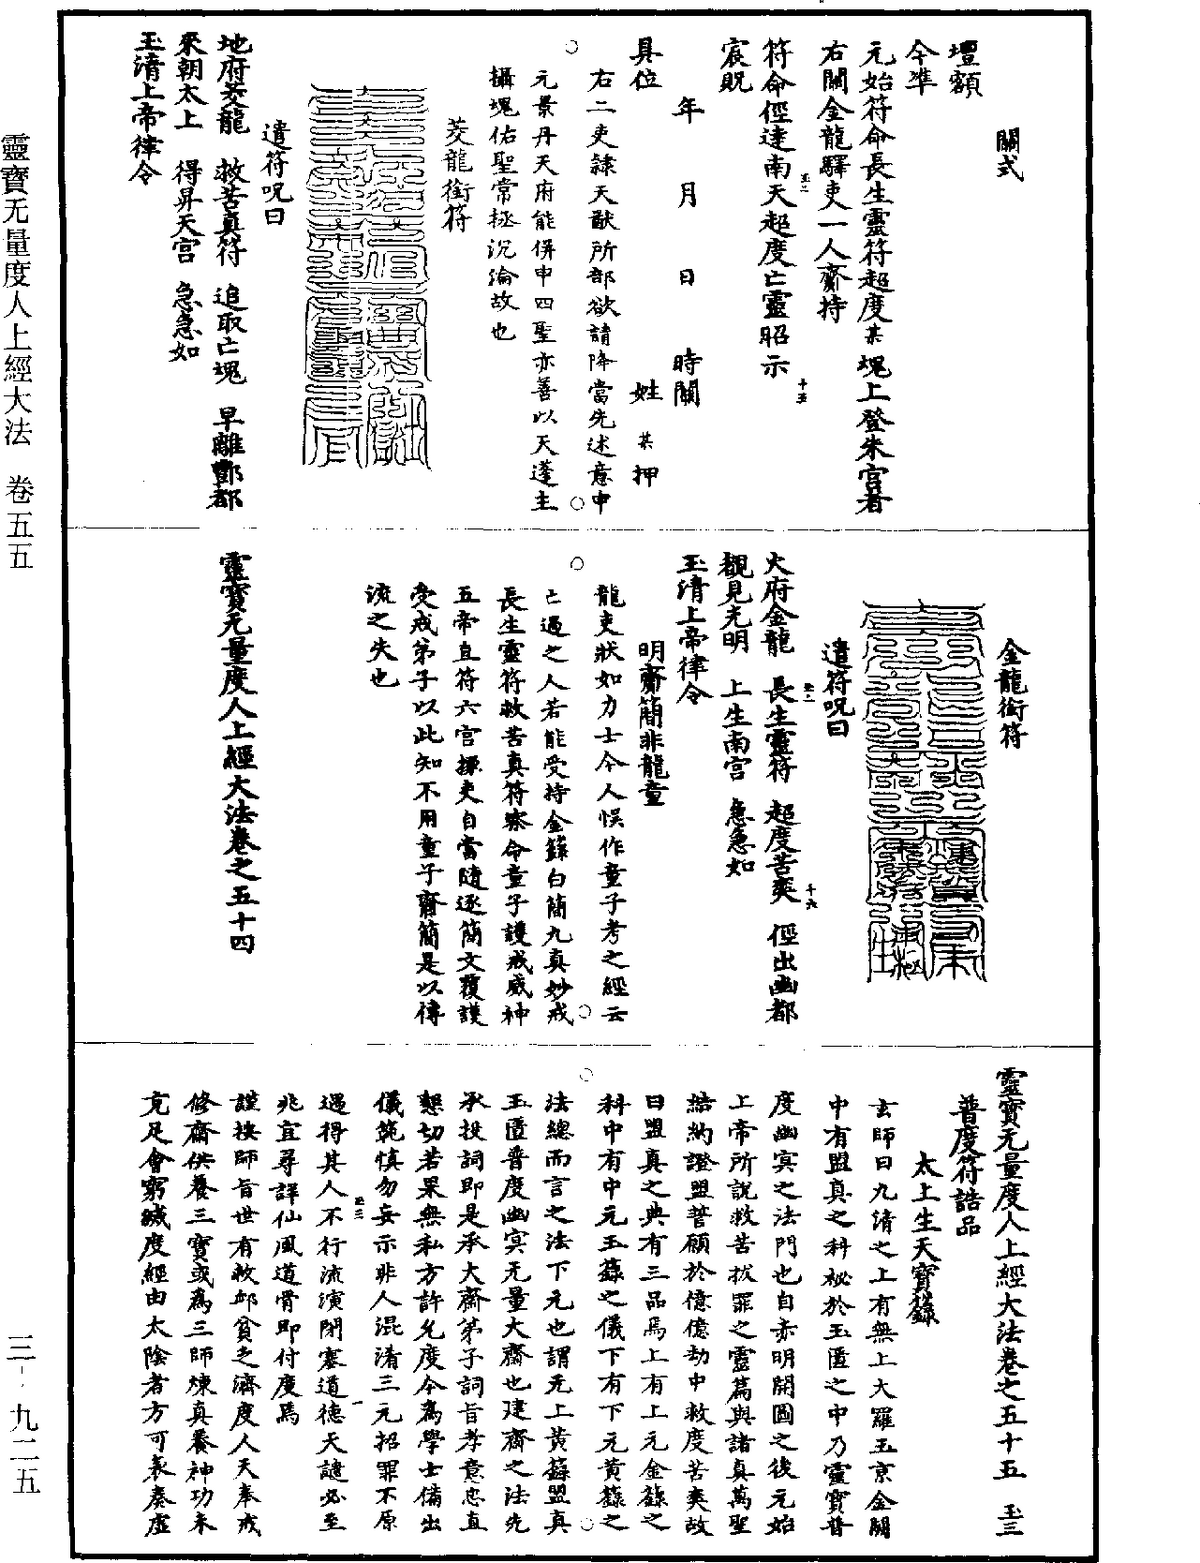 靈寶无量度人上經大法　卷五五
三-九二五
關式
壇額
今准
元始符命長生靈符超度某魂上登朱宮者
右關金龍驛吏一人齎持
符命徑達南天超度亡靈昭示
宸貺
年　月　日　時關
具位　姓　某　押
右二吏隸天猷所部欲請降當先述意申
元景丹天府能併申四聖亦善以天蓬主
攝魂佑聖常拯沉淪故也
茭龍銜符
遣符呪曰
地府茭龍　救苦真符　追取亡魂　早離酆都
來朝太上　得昇天宮　急急如
玉清上帝律令
金龍銜符
遣符呪曰
火府金龍　長生靈符　超度苦爽　徑出幽都
覩見光明　上生南宮　急急如
玉清上帝律令
明齋簡非龍童
龍吏狀如力士今人悞作童子考之經云
亡過之人若能受持金籙白簡九真妙戒
長生靈符救苦真符察命童子護戒威神
五帝直符六宮掾吏自當隨逐簡文覆護
受戒弟子以此知不用童子齎簡是以傳
流之失也
靈寶无量度人上經大法卷之五十四
靈寶无量度人上經大法卷之五十五　玉三
普度符誥品
太上生天寶籙
玄師曰九清之上有無上大羅玉京金闕
中有盟真之科祕於玉匱之中乃靈寶普
度幽冥之法門也自赤明開圖之後元始
上帝所說救苦拔罪之靈篇與諸真萬聖
結約證盟誓願於億億劫中救度苦爽故
曰盟真之典有三品焉上有上元金籙之
科中有中元玉籙之儀下有下元黃籙之
法總而言之法下元也謂无上黃籙盟真
玉匱普度幽冥无量大齋也建齋之法先
承投詞即是承大齋弟子詞旨孝意忠直
懇切若果無私方許允度今為學士備出
儀範慎勿妄示非人混淆三元招罪不原
遇得其人不行流演閉塞道德天譴必至
兆宜尋詳仙風道骨即付度焉
謹按師旨世有救卹貧乏濟度人天奉戒
修齋供養三寶或為三師煉真養神功未
充足會窮緘度經由太陰者方可表奏虛